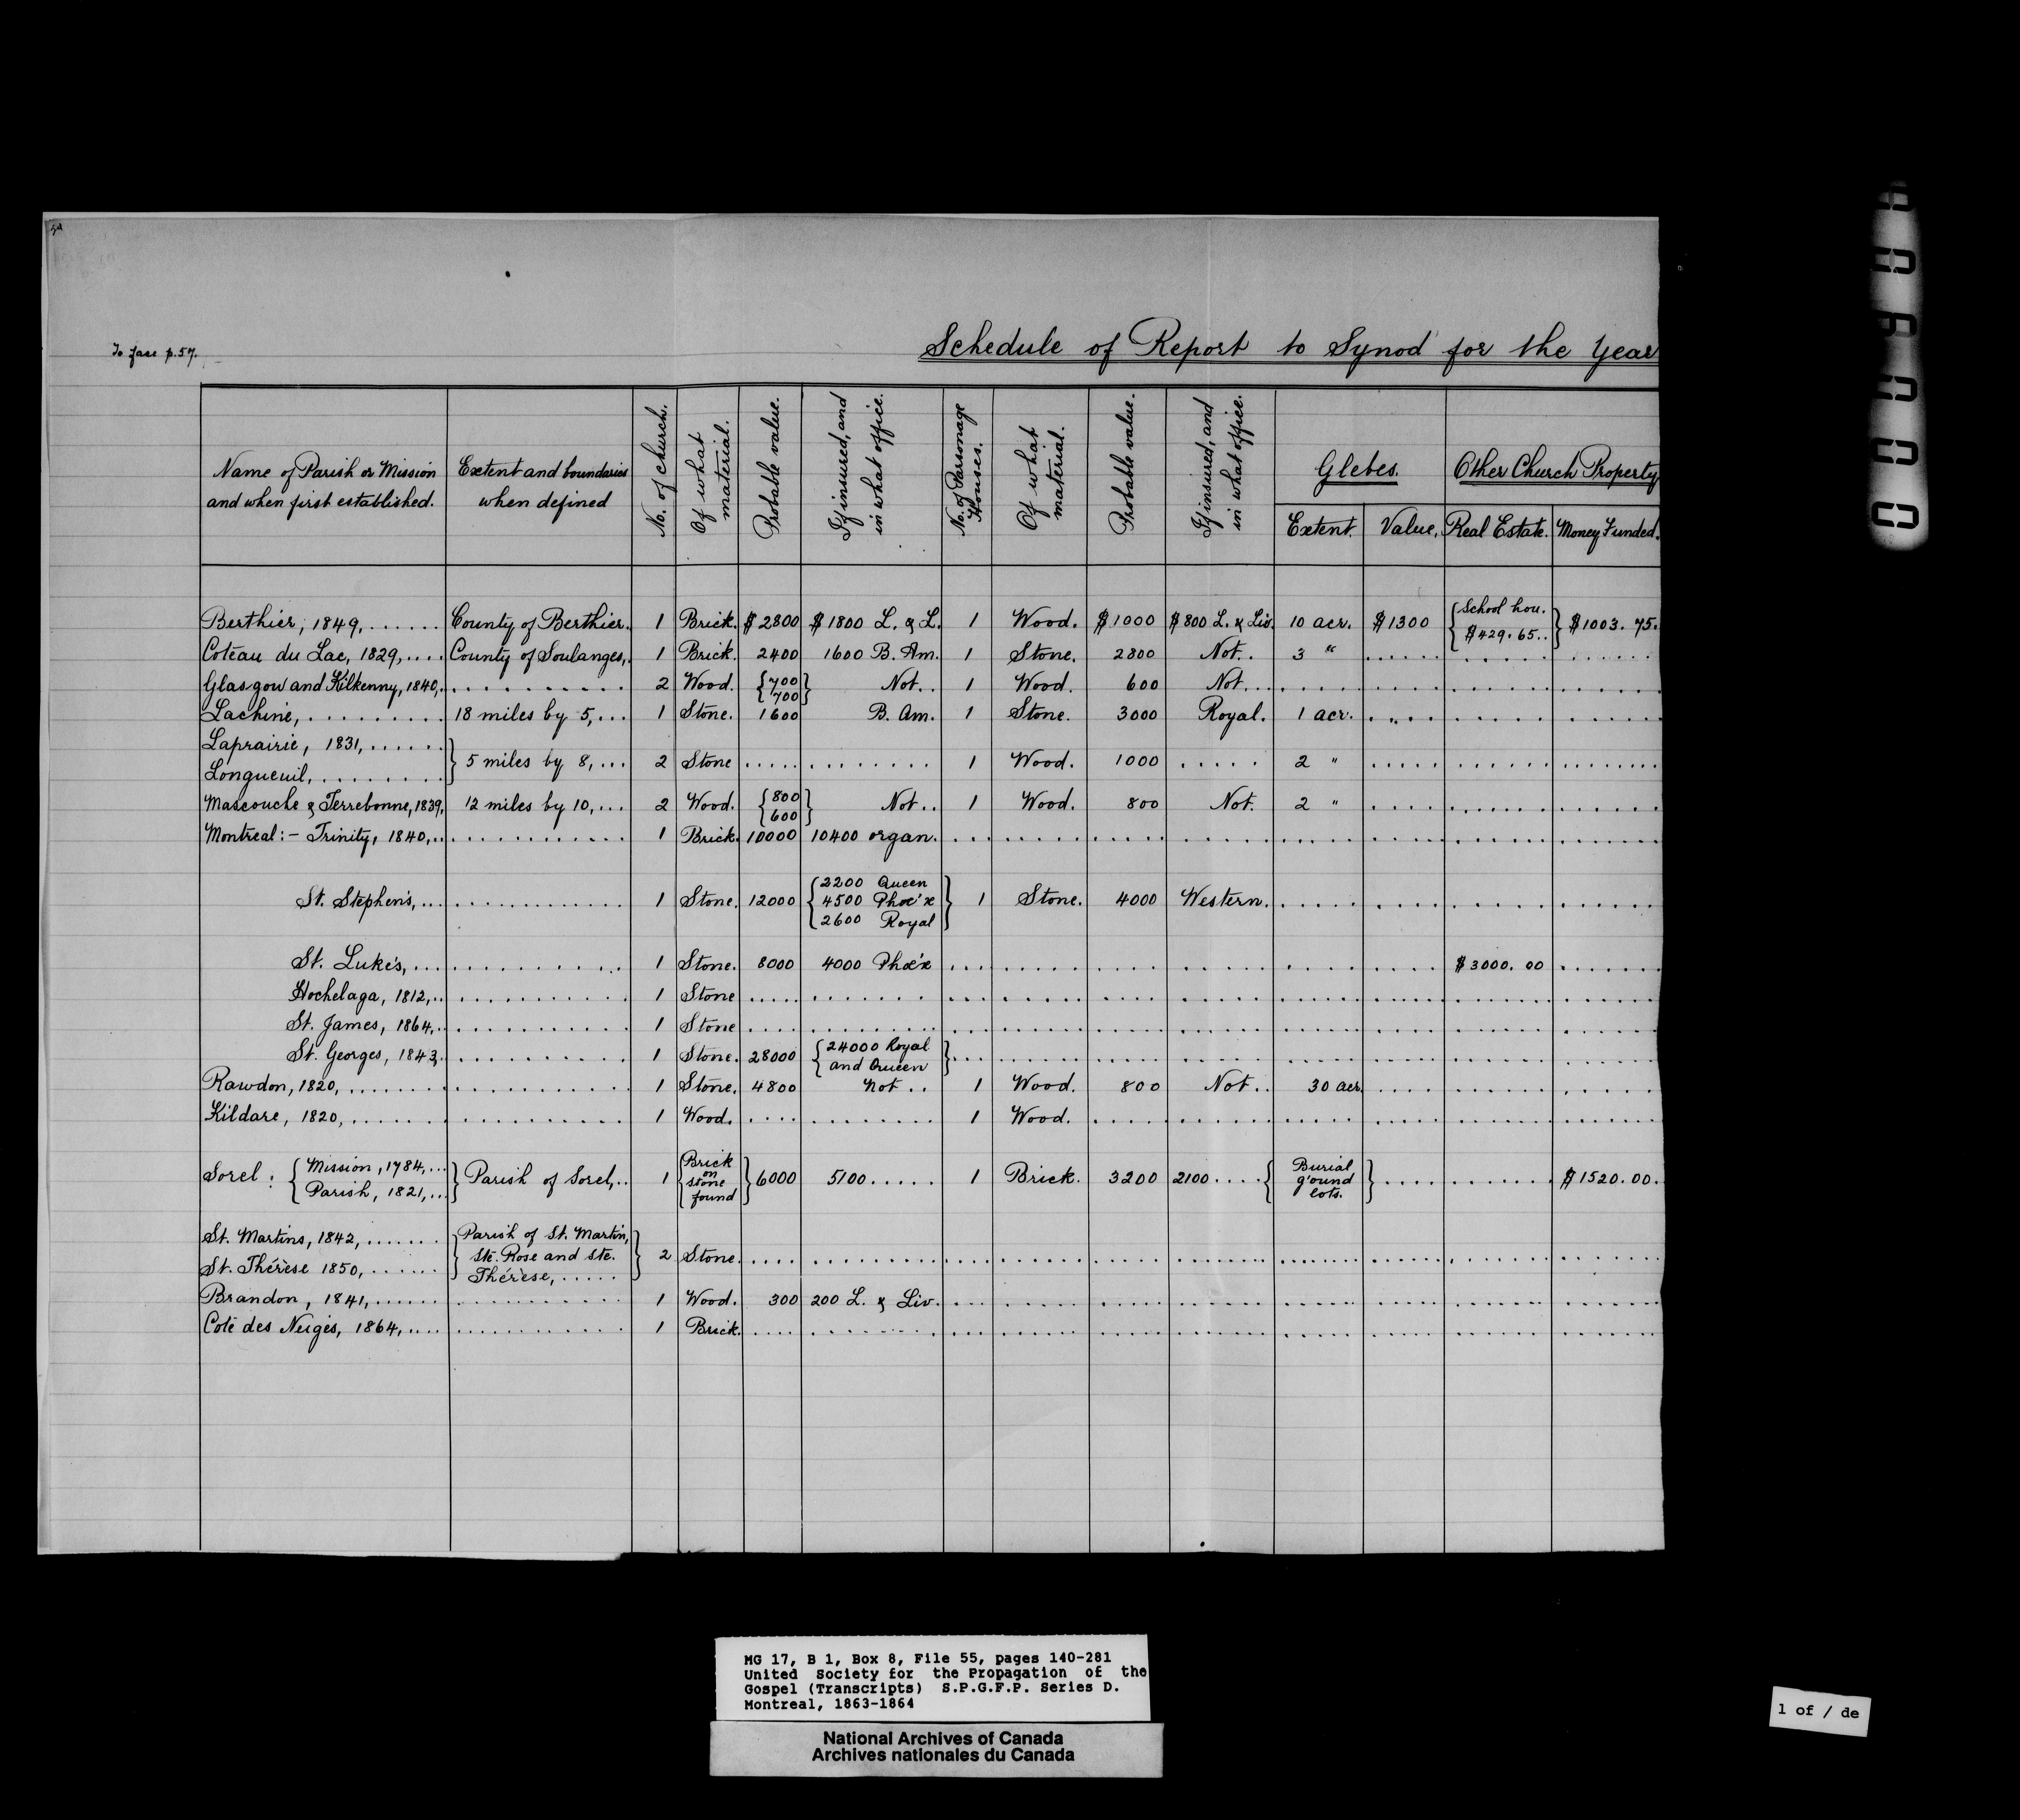 To face p. 57.
Schedule of Report to Synod for the Year
Name of Parish or Mission and when first established. | Extent and boundaries when defined | No. of church. | Of what material. | Probable value. | If insured, and in what office. | No. of Parsonage Houses. | Of what material. | Probable value. | If insured, and in what office. | Glebes. Extent. | Value. | Other Church Property Real Estate. | Money Funded.
Berthier, 1849,...... County of Berthier. 1 Brick. $2800 $1800 L. & L. 1 Wood. $1000 $800 L. & Liv. 10 acr. $1300 { School hou. $429.65.. } $1003.75.
Coteau du Lac, 1829,.... County of Soulanges,. 1 Brick. 2400 1600 B. Am. 1 Stone. 2800 Not.. 3 "
Glasgow and Kilkenny, 1840,. 2 Wood. { 700 700 } Not.. 1 Wood. 600 Not...
Lachine,......... 18 miles by 5,... 1 Stone. 1600 B. Am. 1 Stone. 3000 Royal. 1 acr.
Laprairie, 1831,......
Longueuil,........ } 5 miles by 8,... 2 Stone ..... 1 Wood. 1000 ..... 2 "
Mascouche & Terrebonne, 1839, 12 miles by 10,... 2 Wood. { 800 600 } Not.. 1 Wood. 800 Not. 2 "
Montreal:- Trinity, 1840,.. 1 Brick. 10000 10400 organ.
St. Stephen's,... 1 Stone. 12000 { 2200 Queen 4500 Phoe'x 2600 Royal } 1 Stone. 4000 Western.
St. Luke's,... 1 Stone. 8000 4000 Phoe'x $3000.00
Hochelaga, 1812,.. 1 Stone
St. James, 1864,.. 1 Stone
St. Georges, 1843,. 1 Stone. 28000 { 24000 Royal and Queen }
Rawdon, 1820,....... 1 Stone. 4800 not.. 1 Wood. 800 Not.. 30 acr.
Kildare, 1820,....... 1 Wood. .... 1 Wood.
Sorel: { Mission, 1784,... Parish, 1821,... } Parish of Sorel,.. 1 { Brick on stone found } 6000 5100..... 1 Brick. 3200 2100.... { Burial g'ound lots. } $1520.00.
St. Martins, 1842,.......
St. Thérèse 1850,...... } Parish of St. Martin, Ste. Rose and Ste. Thérèse,..... } 2 Stone.
Brandon, 1841,...... 1 Wood. 300 200 L. & Liv.
Coté des Neiges, 1864,.... 1 Brick.
MG 17, B 1, Box 8, File 55, pages 140-281
United Society for the Propagation of the
Gospel (Transcripts) S.P.G.F.P. Series D.
Montreal, 1863-1864
National Archives of Canada
Archives nationales du Canada
1 of / de